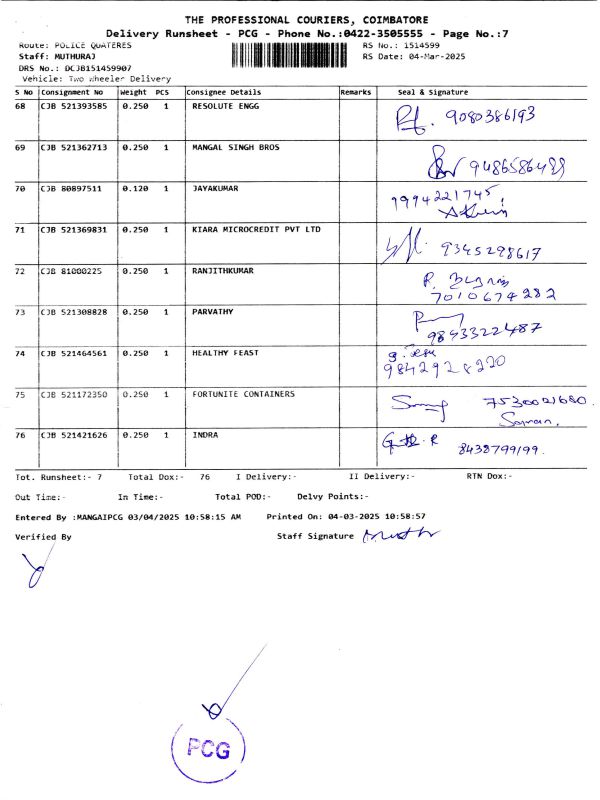 THE PROFESSIONAL COURIERS, COIMBATORE
Delivery Runsheet - PCG - Phone No.:0422-3505555 - Page No.:7
Route: POLICE QUATERES RS No.: 1514599
Staff: MUTHURAJ RS Date: 04-Mar-2025
DRS No.: DCJB151459907
Vehicle: Two Wheeler Delivery
S No Consignment No Weight PCS Consignee Details Remarks Seal & Signature
68 CJB 521393585 0.250 1 RESOLUTE ENGG 9080386193
69 CJB 521362713 0.250 1 MANGAL SINGH BROS
70 CJB 80897511 0.120 1 JAYAKUMAR 9994221745
71 CJB 521369831 0.250 1 KIARA MICROCREDIT PVT LTD 9345298617
72 CJB 81000225 0.250 1 RANJITHKUMAR 7010674282
73 CJB 521308828 0.250 1 PARVATHY
74 CJB 521464561 0.250 1 HEALTHY FEAST 9842928220
75 CJB 521172350 0.250 1 FORTUNITE CONTAINERS 7530021680
76 CJB 521421626 0.250 1 INDRA 8438799199
Tot. Runsheet:- 7 Total Dox:- 76 I Delivery:- II Delivery:- RTN Dox:-
Out Time:- In Time:- Total POD:- Delvy Points:-
Entered By :MANGAIPCG 03/04/2025 10:58:15 AM Printed On: 04-03-2025 10:58:57
Verified By Staff Signature
PCG